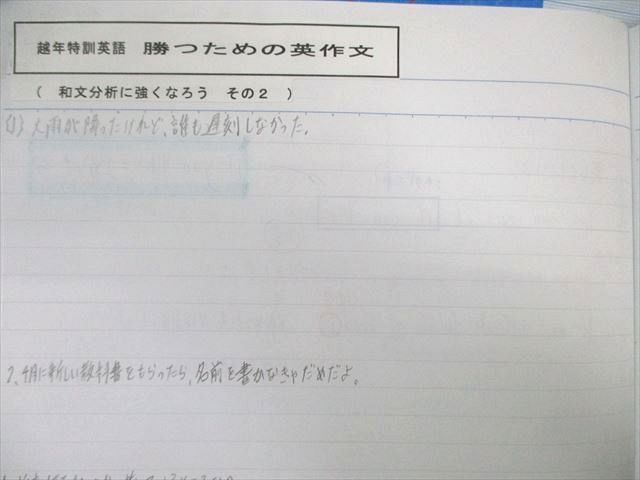 越年特訓英語 勝つための英作文
( 和文分析に強くなろう その2 )
(1) 大雨が降ったけれど、誰も遅刻しなかった。
2、4月に新しい教科書をもらったら、名前を書かなきゃだめだよ。